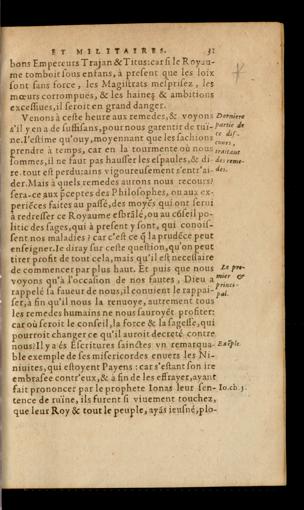 ET MILITAIRES. 51
bons Empereurs Trajan & Titus: car si le Royau-
me tomboit sous enfans, à present que les loix
sont sans force, les Magistrats mesprisez, les
mœurs corrompuës, & les haines & ambitions
excessiues, il seroit en grand danger.
Venons à ceste heure aux remedes, & voyons
s'il y en a de suffisans, pour nous garentir de ruï-
ne. I'estime qu'ouy, moyennant que les sachions
prendre à temps, car en la tourmente où nous
sommes, il ne faut pas hausser les espaules, & di-
re. tout est perdu: ains vigoureusement s'entr'ai-
der. Mais à quels remedes aurons nous recours?
sera-ce aux preceptes des Philosophes, ou aux ex-
periẽces faites au passé, des moyẽs qui ont serui
à redresser ce Royaume esbrãlé, ou au cõseil po-
litic des sages, qui à present y sont, qui conois-
sent nos maladies? car c'est ce q̃ la prudẽce peut
enseigner. Ie diray sur ceste question, qu'on peut
tirer profit de tout cela, mais qu'il est necessaire
de commencer par plus haut. Et puis que nous
voyons qu'à l'occasion de nos fautes, Dieu a
rappelé sa faueur de nous, il conuient le rappai-
ser, à fin qu'il nous la renuoye, autrement tous
les remedes humains ne nous sauroyẽt profiter:
car où seroit le conseil, la force & la sagesse, qui
pourroit changer ce qu'il auroit decreté contre
nous? Il y a és Escritures sainctes vn remarqua-
ble exemple de ses misericordes enuers les Ni-
niuites, qui estoyent Payens: car s'estant son ire
embrasee contr'eux, & à fin de les effrayer, ayant
fait prononcer par le prophete Ionas leur sen-
tence de ruïne, ils furent si viuement touchez,
que leur Roy & tout le peuple, ayãs ieusné, plo-
Derniere
partie de
ce dis-
cours,
traitant
des reme-
des.
Le pre-
mier &
princi-
pal.
Exẽple.
Io. ch. 3.